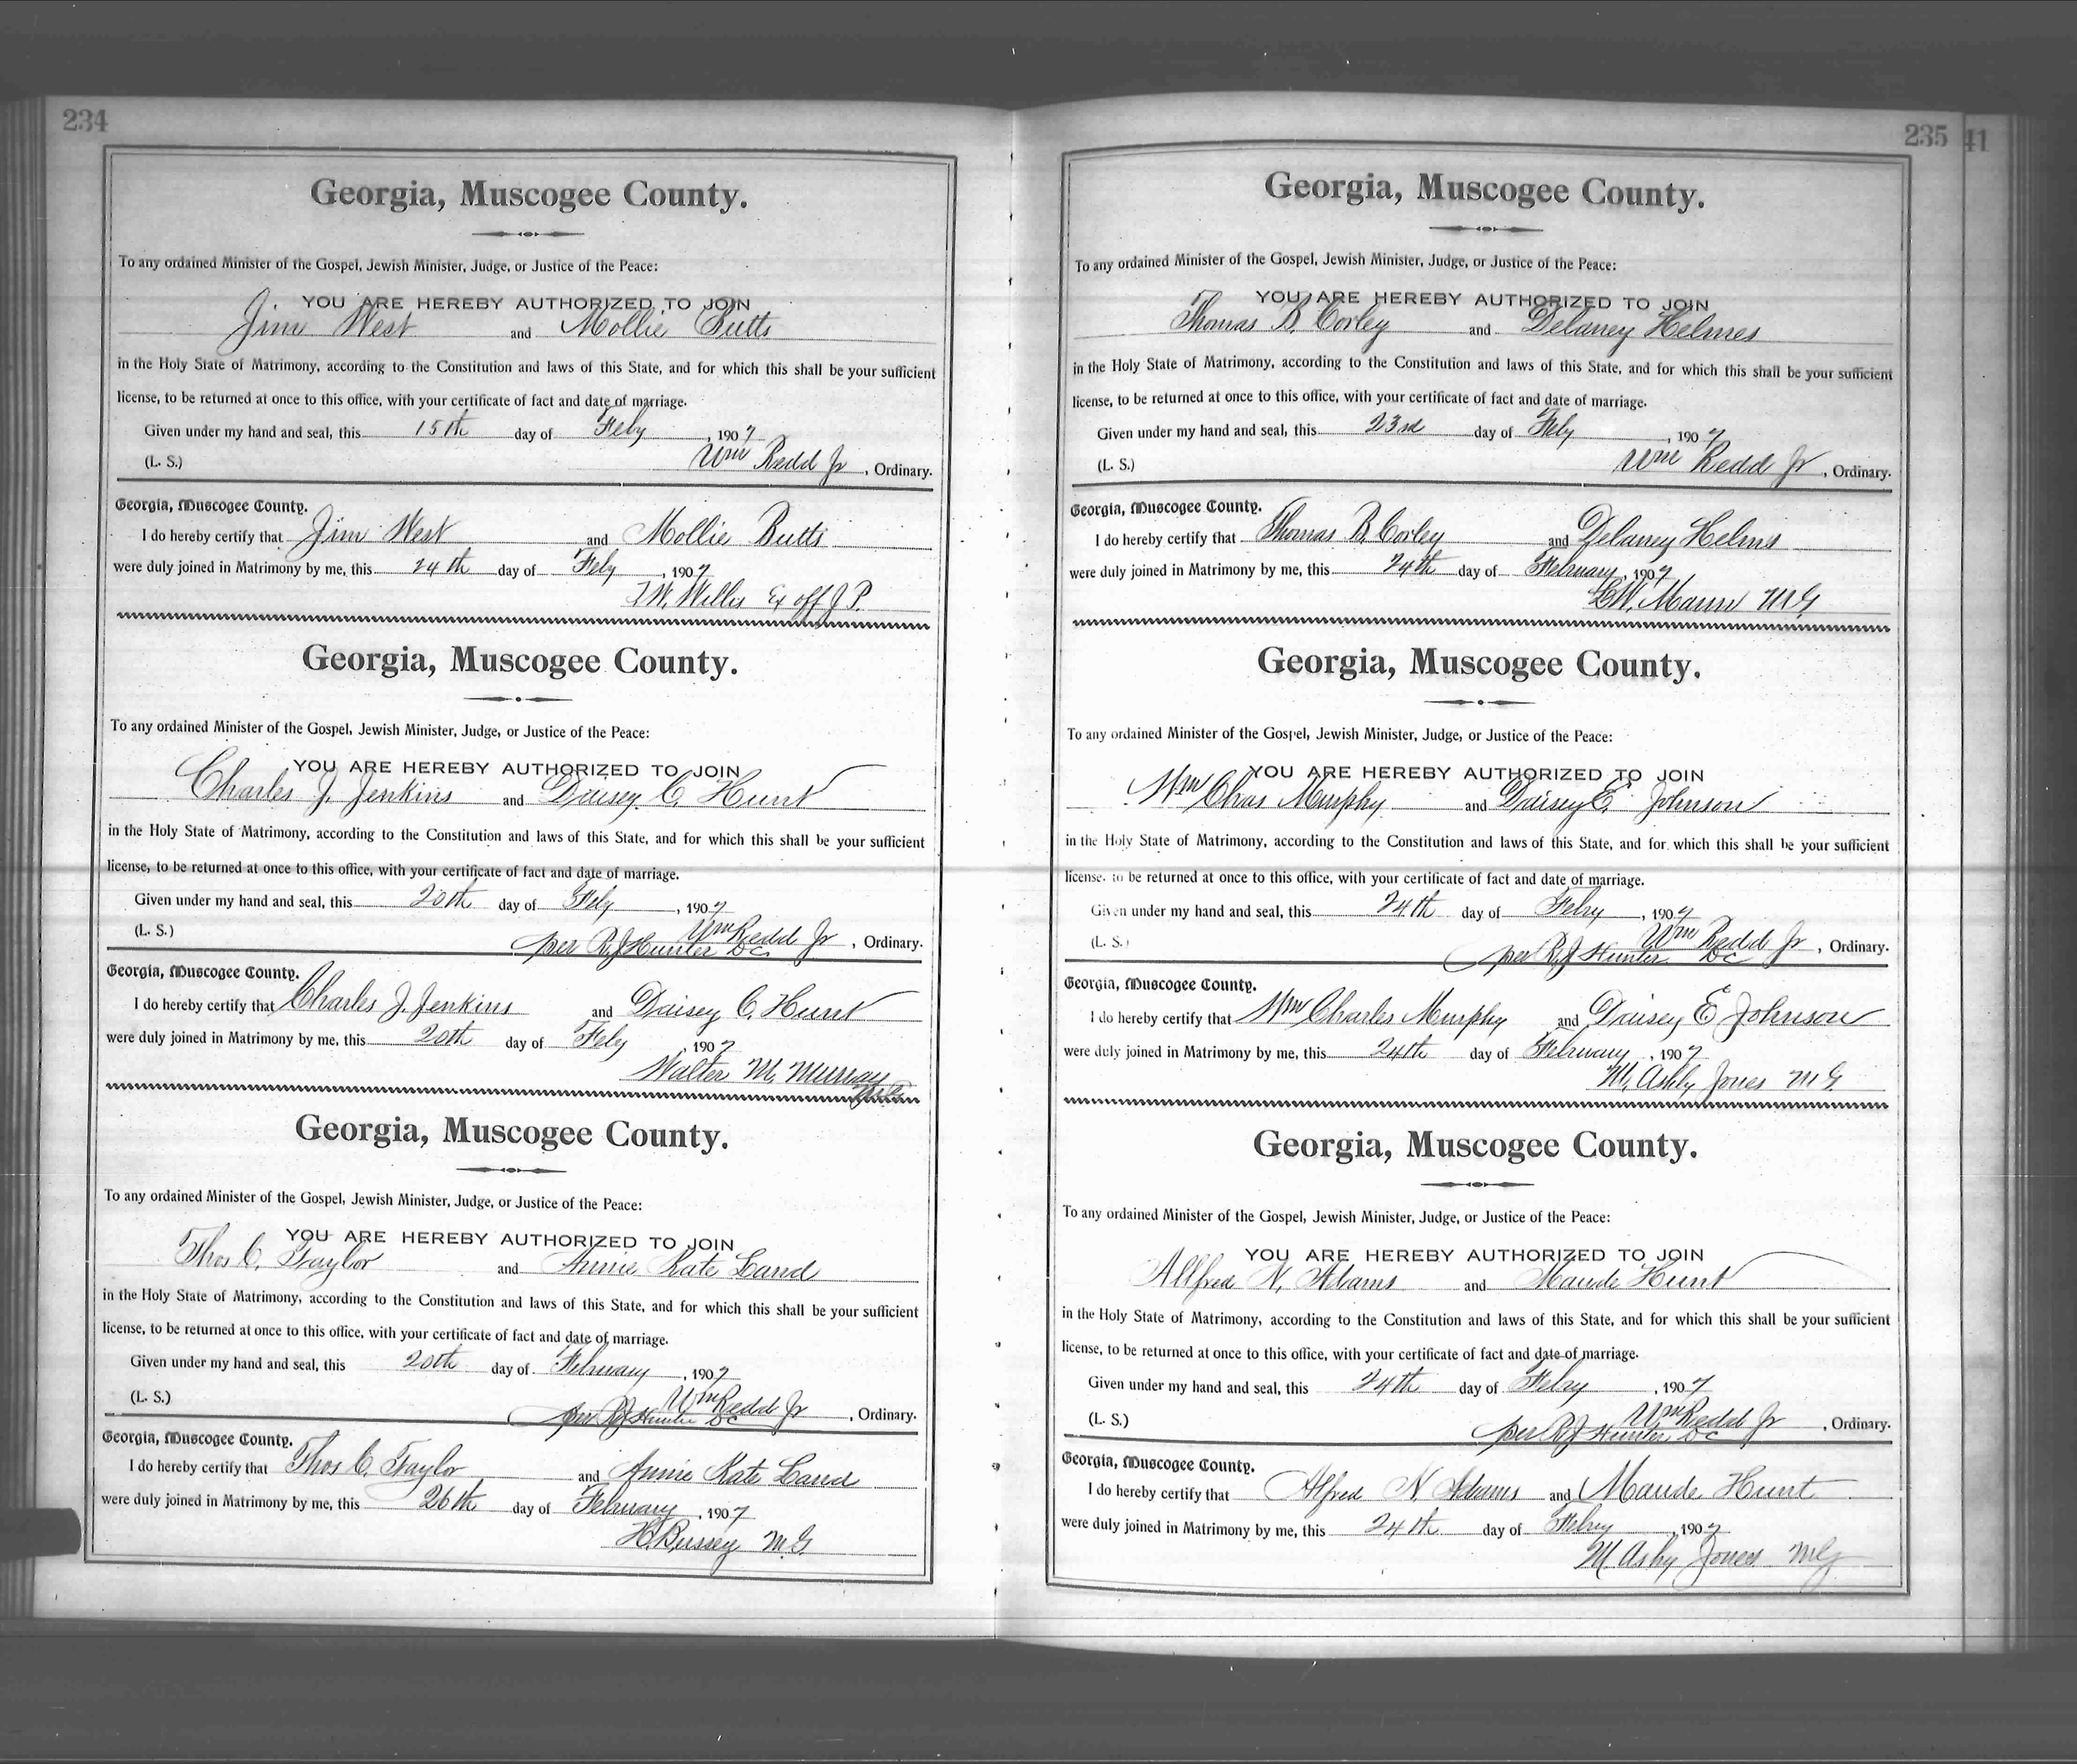 234
Georgia, Muscogee County.
To any ordained Minister of the Gospel, Jewish Minister, Judge, or Justice of the Peace:
YOU ARE HEREBY AUTHORIZED TO JOIN
Jim West and Mollie Butts
in the Holy State of Matrimony, according to the Constitution and laws of this State, and for which this shall be your sufficient
license, to be returned at once to this office, with your certificate of fact and date of marriage.
Given under my hand and seal, this 15th day of Feby, 1907
(L. S.) Wm Redd Jr, Ordinary.
Georgia, Muscogee County.
I do hereby certify that Jim West and Mollie Butts
were duly joined in Matrimony by me, this 24th day of Feby, 1907
Willis Ex off J. P.
Georgia, Muscogee County.
To any ordained Minister of the Gospel, Jewish Minister, Judge, or Justice of the Peace:
YOU ARE HEREBY AUTHORIZED TO JOIN
Charles J. Jenkins and Daisey C. Hunt
in the Holy State of Matrimony, according to the Constitution and laws of this State, and for which this shall be your sufficient
license, to be returned at once to this office, with your certificate of fact and date of marriage.
Given under my hand and seal, this 20th day of Feby, 1907
(L. S.) Wm Redd Jr, Ordinary.
per R. J. Hunter DC
Georgia, Muscogee County.
I do hereby certify that Charles J. Jenkins and Daisey C. Hunt
were duly joined in Matrimony by me, this 20th day of Feby, 1907
Walter M. Murray
M. G.
Georgia, Muscogee County.
To any ordained Minister of the Gospel, Jewish Minister, Judge, or Justice of the Peace:
YOU ARE HEREBY AUTHORIZED TO JOIN
Thos C. Taylor and Annie Kate Land
in the Holy State of Matrimony, according to the Constitution and laws of this State, and for which this shall be your sufficient
license, to be returned at once to this office, with your certificate of fact and date of marriage.
Given under my hand and seal, this 20th day of February, 1907
(L. S.) Wm Redd Jr, Ordinary.
per R J Hunter DC
Georgia, Muscogee County.
I do hereby certify that Thos C. Taylor and Annie Kate Land
were duly joined in Matrimony by me, this 26th day of February, 1907
H. Bussey M. G.
235 41
Georgia, Muscogee County.
To any ordained Minister of the Gospel, Jewish Minister, Judge, or Justice of the Peace:
YOU ARE HEREBY AUTHORIZED TO JOIN
Thomas B. Corley and Delaney Helmes
in the Holy State of Matrimony, according to the Constitution and laws of this State, and for which this shall be your sufficient
license, to be returned at once to this office, with your certificate of fact and date of marriage.
Given under my hand and seal, this 23rd day of Feby, 1907
(L. S.) Wm Redd Jr, Ordinary.
Georgia, Muscogee County.
I do hereby certify that Thomas B. Corley and Delaney Helms
were duly joined in Matrimony by me, this 24th day of February, 1907
Mann M G
Georgia, Muscogee County.
To any ordained Minister of the Gospel, Jewish Minister, Judge, or Justice of the Peace:
YOU ARE HEREBY AUTHORIZED TO JOIN
Wm Chas Murphy and Daisey E. Johnson
in the Holy State of Matrimony, according to the Constitution and laws of this State, and for which this shall be your sufficient
license, to be returned at once to this office, with your certificate of fact and date of marriage.
Given under my hand and seal, this 24th day of Febry, 1907
(L. S.) Wm Redd Jr, Ordinary.
per R. J Hunter DC
Georgia, Muscogee County.
I do hereby certify that Wm Charles Murphy and Daisey E Johnson
were duly joined in Matrimony by me, this 24th day of February, 1907
M. Ashby Jones M G
Georgia, Muscogee County.
To any ordained Minister of the Gospel, Jewish Minister, Judge, or Justice of the Peace:
YOU ARE HEREBY AUTHORIZED TO JOIN
Allfred N. Adams and Maude Hunt
in the Holy State of Matrimony, according to the Constitution and laws of this State, and for which this shall be your sufficient
license, to be returned at once to this office, with your certificate of fact and date of marriage.
Given under my hand and seal, this 24th day of Febry, 1907
(L. S.) Wm Redd Jr, Ordinary.
per R J Hunter DC
Georgia, Muscogee County.
I do hereby certify that Alfred N. Adams and Maude Hunt
were duly joined in Matrimony by me, this 24th day of Febry, 1907
M. Ashby Jones MG